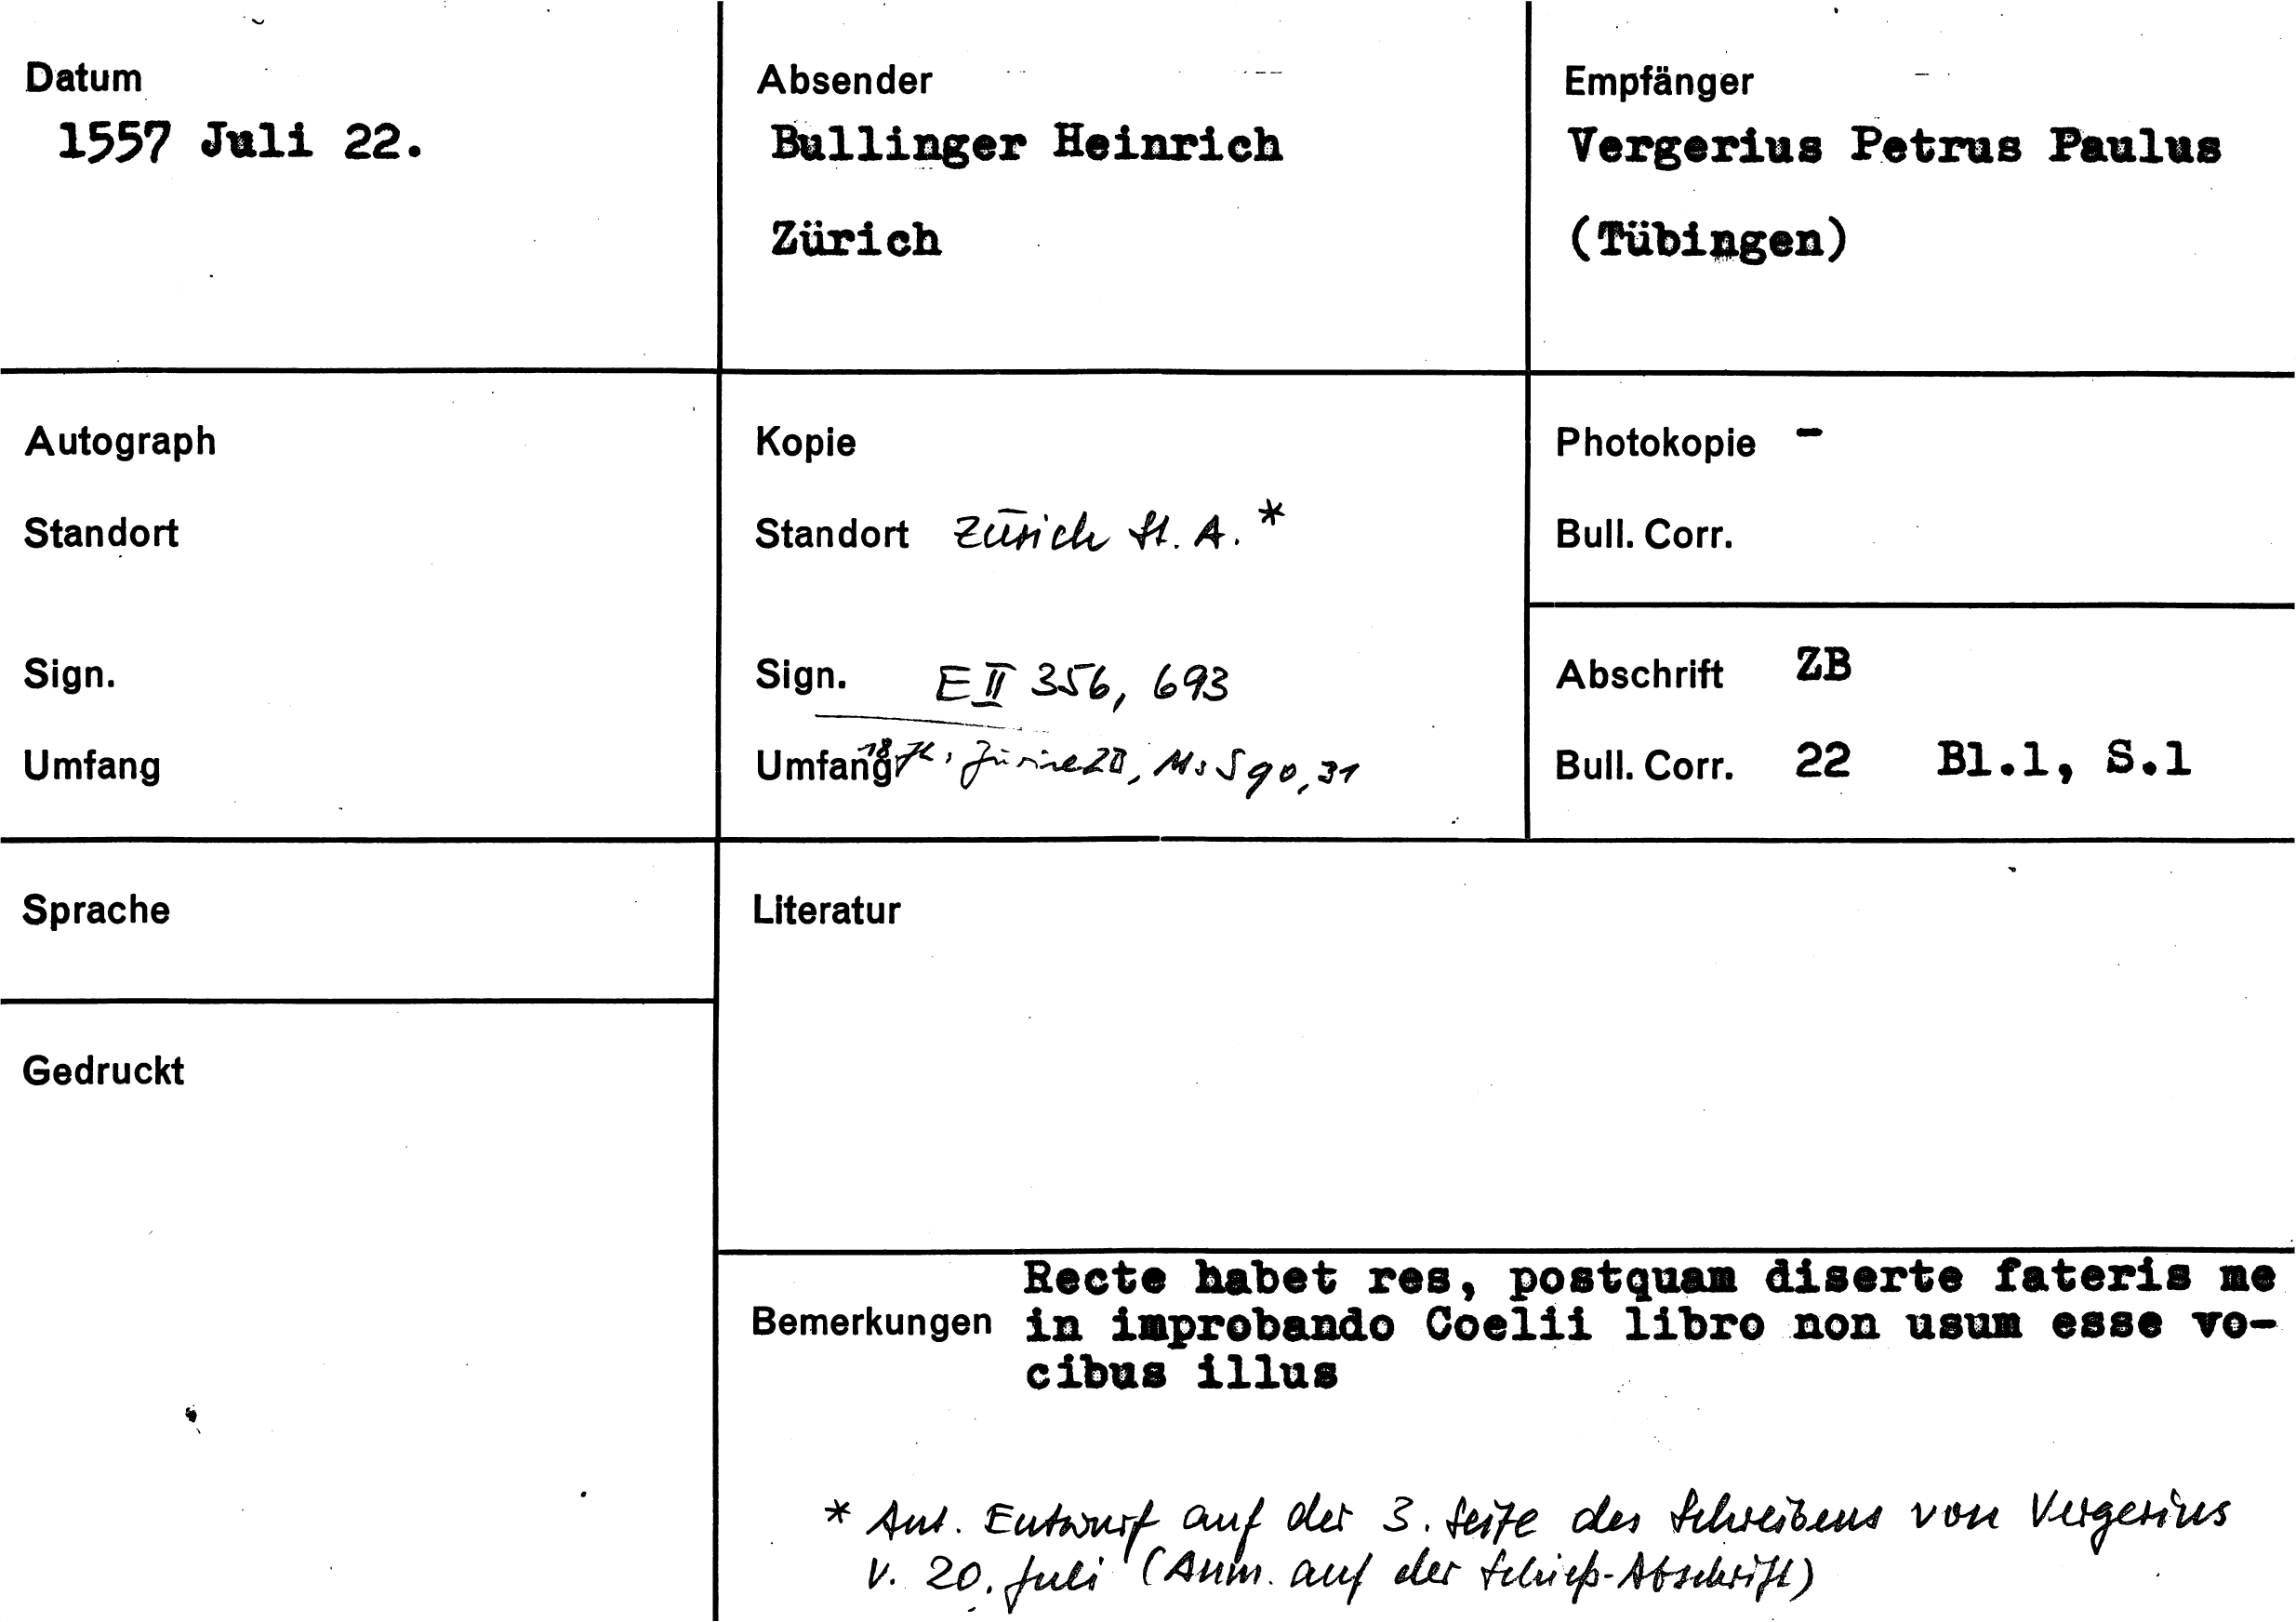 Datum
1557 Juli 22.
Absender
Bullinger Heinrich
Zürich
Empfänger
Vergerius Petrus Paulus
(Tübingen)
Autograph
Standort
Sign.
Umfang
Kopie
Standort Zürich St. A. *
Sign. E II 356, 693
Umfang 18. Jh. Zürich ZB, Ms S 90, 31
Photokopie -
Bull. Corr.
Abschrift ZB
Bull. Corr. 22 Bl.1, S.1
Sprache
Gedruckt
Literatur
Bemerkungen
Recte habet res, postquam diserte fateris me
in improbando Coelii libro non usum esse vo-
cibus illus
* Aut. Entwurf auf der 3. Seite des Schreibens von Vergerius
v. 20. Juli (Anm. auf der Schieß-Abschrift)